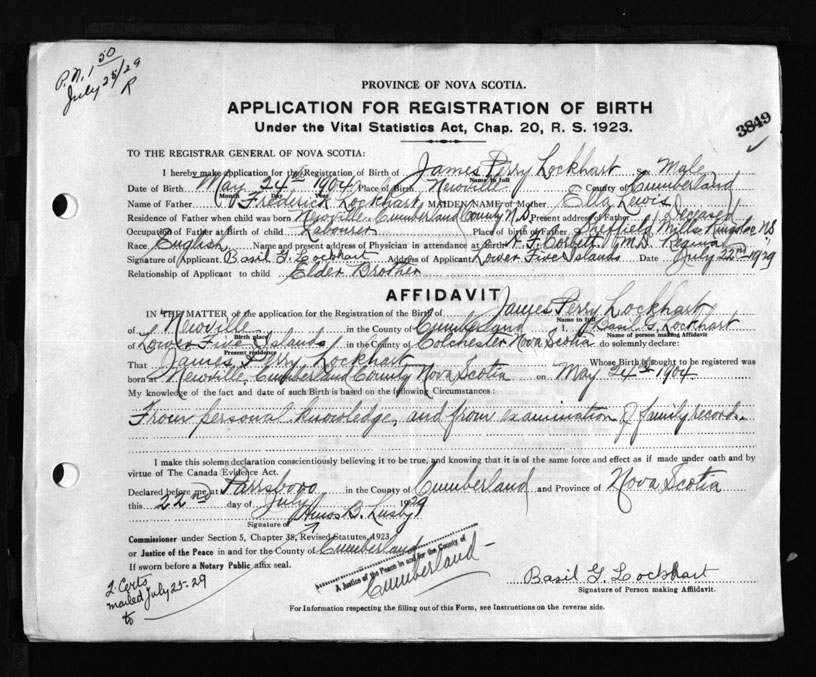 P.N. 1 50
July 25/29
R
PROVINCE OF NOVA SCOTIA.
APPLICATION FOR REGISTRATION OF BIRTH
Under the Vital Statistics Act, Chap. 20, R. S. 1923.
3849
TO THE REGISTRAR GENERAL OF NOVA SCOTIA:
I hereby make application for the Registration of Birth of James Perry Lockhart Sex Male
Name in full
Date of Birth May 24th 1904 Place of Birth Newville County of Cumberland
Month Day Year
Name of Father Frederick Lockhart MAIDEN NAME of Mother Ella Lewis
Residence of Father when child was born Newville Cumberland County N.S. Present address of Father Deceased
Occupation of Father at Birth of child Labourer Place of birth of Father Sheffield Mills Kings Co. N.S.
Race English Name and present address of Physician in attendance at Birth Corbett M.D. Regina
Signature of Applicant Basil G. Lockhart Address of Applicant Lower Five Islands Date July 22nd 1929
Relationship of Applicant to child Elder Brother
AFFIDAVIT
IN THE MATTER of the application for the Registration of the Birth of James Perry Lockhart
Name in full
of Newville in the County of Cumberland I, Basil G. Lockhart
Birth place Name of person making Affidavit
of Lower Five Islands in the County of Colchester Nova Scotia do solemnly declare:
Present residence
That James Perry Lockhart Whose Birth is sought to be registered was
born at Newville, Cumberland County Nova Scotia on May 24th 1904
My knowledge of the fact and date of such Birth is based on the following Circumstances:
From personal knowledge, and from examination of family records.
I make this solemn declaration conscientiously believing it to be true, and knowing that it is of the same force and effect as if made under oath and by
virtue of The Canada Evidence Act.
Declared before me at Parrsboro in the County of Cumberland and Province of Nova Scotia
this 22nd day of July 1929
Signature of Amos B. Lusby
Commissioner under Section 5, Chapter 38, Revised Statutes, 1923
or Justice of the Peace in and for the County of Cumberland
If sworn before a Notary Public affix seal.
A Justice of the Peace in and for the County of
Cumberland
2 Certs
mailed July 25-29
to
Basil G. Lockhart
Signature of Person making Affidavit.
For Information respecting the filling out of this Form, see Instructions on the reverse side.